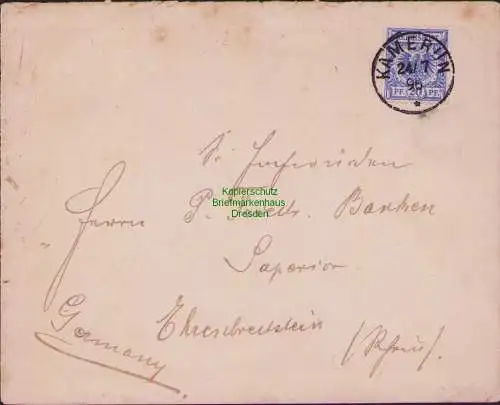 KAMERUN
24/7
96
*
PF. 20 PF.
Sr. Hochwürden
Herrn P.
Kopierschutz
Briefmarkenhaus
Dresden
Superior
Ehrenbreitstein
(Rhein).
Germany